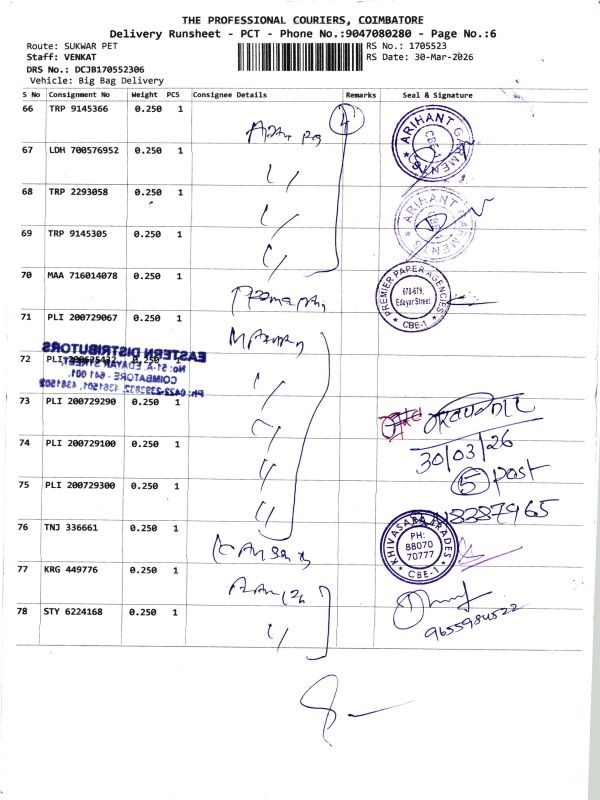 THE PROFESSIONAL COURIERS, COIMBATORE
Delivery Runsheet - PCT - Phone No.:9047080280 - Page No.:6
Route: SUKWAR PET RS No.: 1705523
Staff: VENKAT RS Date: 30-Mar-2026
DRS No.: DCJB170552306
Vehicle: Big Bag Delivery
S No Consignment No Weight PCS Consignee Details Remarks Seal & Signature
66 TRP 9145366 0.250 1
4
ARIHANT GARMENTS
CBE-1
67 LDH 700576952 0.250 1
68 TRP 2293058 0.250 1
ARIHANT GARMENTS
CBE-1
69 TRP 9145305 0.250 1
70 MAA 716014078 0.250 1
PREMIER PAPER AGENCIES
678-679,
Edayar Street,
CBE-1
71 PLI 200729067 0.250 1
72 PLI 0.250 1
EASTERN DISTRIBUTORS
No: 51-A, EDAYAR STREET,
COIMBATORE - 641 001.
73 PLI 200729290 0.250 1
30/03/26
74 PLI 200729100 0.250 1
5 post
75 PLI 200729300 0.250 1
76 TNJ 336661 0.250 1
KHIVASARA TRADES
PH:
88070
70777
CBE-1
77 KRG 449776 0.250 1
78 STY 6224168 0.250 1
9655984522